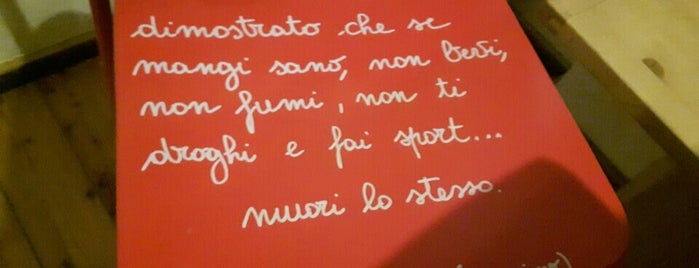 dimostrato che se
mangi sano, non bevi,
non fumi, non ti
droghi e fai sport...
muori lo stesso.